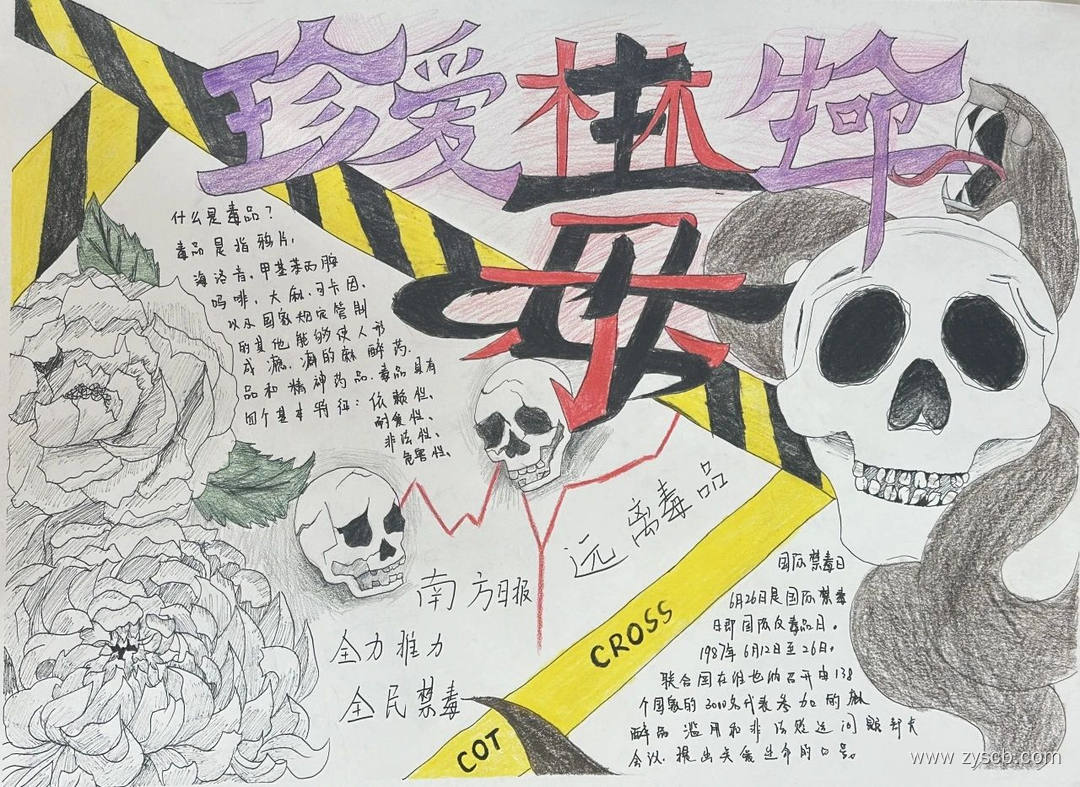 珍爱 禁 生命
毒
什么是毒品？
毒品是指鸦片，
海洛音，甲基苯丙胺
吗啡，大麻，可卡因，
以及国家规定管制
的其他能够使人形
成瘾，瘾的麻醉药，
品和精神药品。毒品具有
四个基本特征：依赖性、
耐受性、
非法性、
危害性、
远离毒品
南方日报
全力推力
全民禁毒
CROSS
COT
国际禁毒日
6月26日是国际禁毒
日即国际反毒品日。
1987年6月12日至26日。
联合国在维也纳召开由138
个国家的3000名代表参加的麻
醉品滥用和非法贩运问题部长
会议，提出关爱生命的口号。
www.zyscb.com